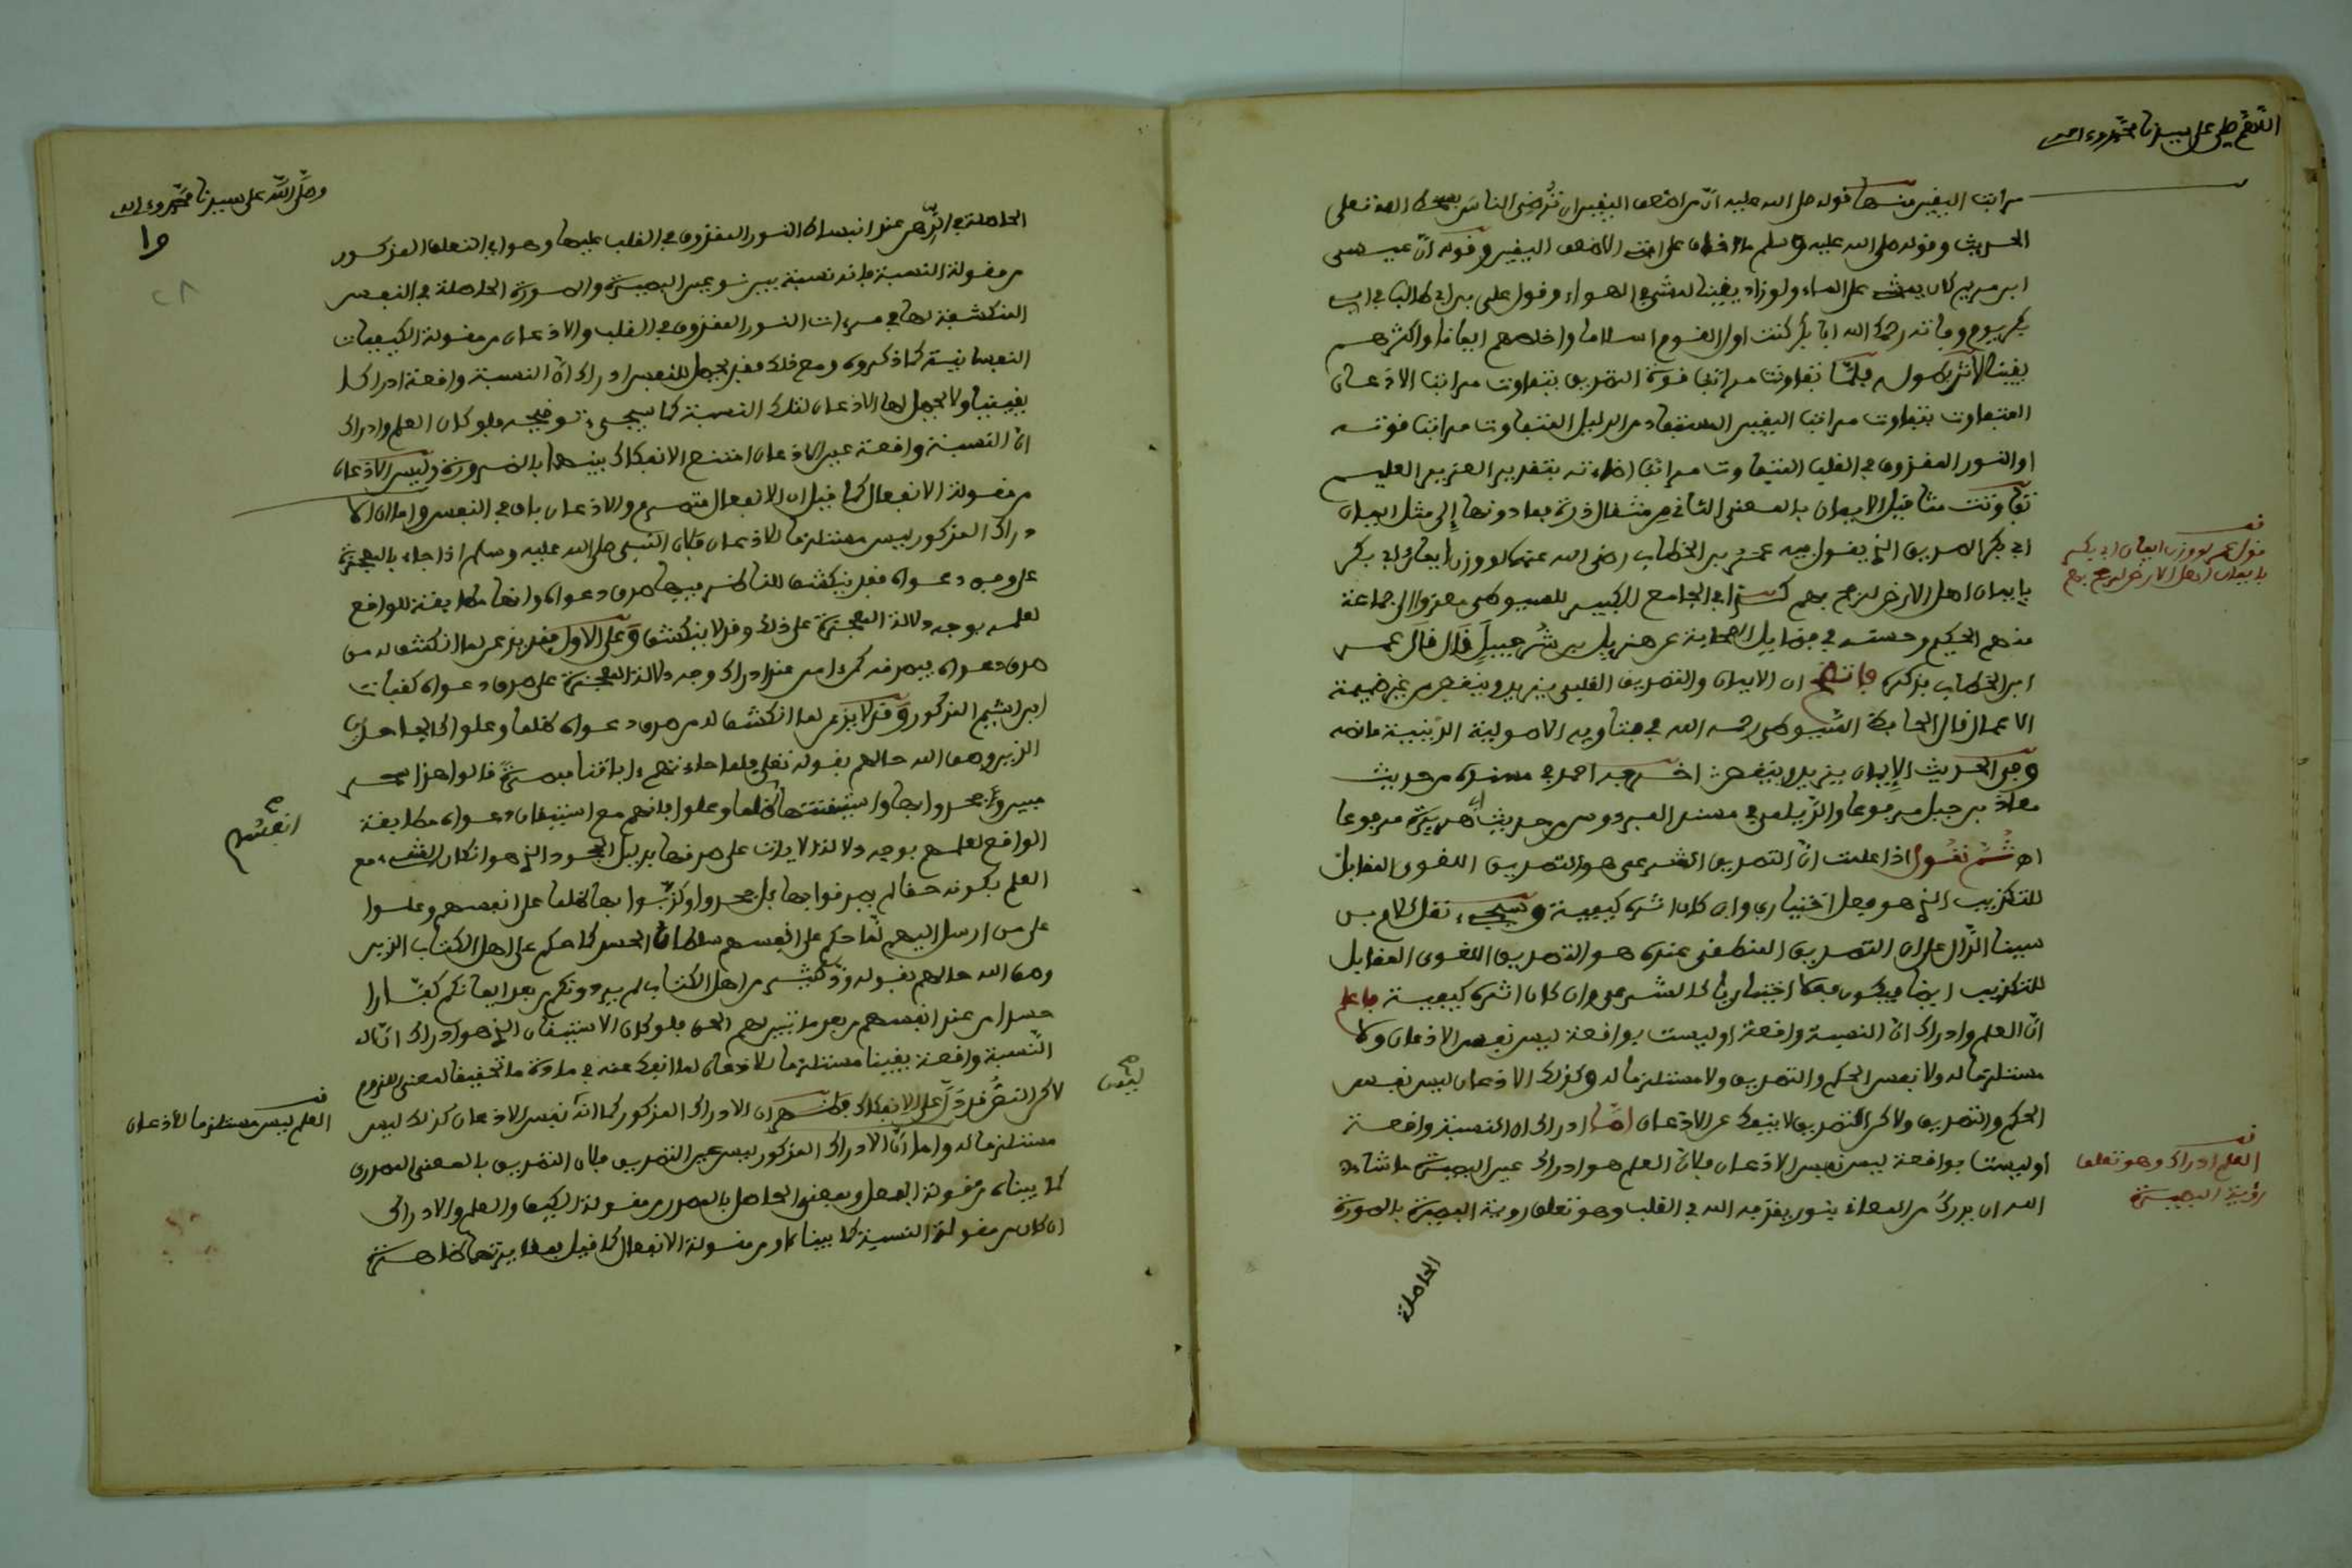 اللهم صل على سيدنا محمد وءاله
مراتب اليقين منها قوله صلى الله عليه ان من اضعف اليقين ان ترضى الناس بسخط الله تعلى
الحديث وقوله صلى الله عليه وسلم ما اخاف على امتى الا ضعف اليقين وقوله ان عيسى
ابن مريم كان يمشى على الماء ولو زاد يقينا لمشى فى الهواء وقول على بن ابى طالب فى ابى
بكر يوم وفاته رحمك الله ابا بكر كنت اول القوم اسلاما واخلصهم ايمانا واكثرهم
يقينا الاثر بطوله فلما تفاوتت مراتب قوة التصديق بتفاوت مراتب الاذعان
المتفاوت بتفاوت مراتب اليقين المستفاد من الدليل المتفاوت مراتب قوته
او النور المقذوف فى القلب المتفاوت مراتب اضاءته بتقدير العزيز العليم
تفاوتت مثاقيل الايمان بالمعنى الثانى من مثقال ذرة فما دونها إلى مثل ايمان
ابى بكر الصديق الذى يقول فيه عمر بن الخطاب رضى الله عنهما لو وزن ايمان ابى بكر
بايمان اهل الارض لرجح بهم كذا فى الجامع الكبير للسيوطى معزوا الى جماعة
منهم الحكيم وحسنه فى فضايل الصحابة عن هزيل بن شرحبيل قال قال عمر
ابن الخطاب فذكره فاتضح ان الايمان والتصديق القلبى يزيد وينقص من غير ضميمة
الاعمال قال الحافظ السيوطى رحمه الله فى فتاويه الاصولية الدينية ما نصه
وفى الحديث الإيمان يزيد وينقص اخرجه احمد فى مسنده من حديث
معاذ بن جبل مرفوعا والديلمى فى مسند الفردوس من حديث ابى هريرة مرفوعا
اهـ ثم نقول اذا علمت ان التصديق الشرعى هو التصديق اللغوى المقابل
للتكذيب الذى هو فعل اختيارى وان كان اثره كيفية وسيجىء نقل كلام بن
سينا الدال على ان التصديق المنطقى عنده هو التصديق اللغوى المقابل
للتكذيب ايضا فيكون فعلا اختياريا كالشرعى وان كان اثره كيفية فاعلم
ان العلم وادراك ان النسبة واقعة او ليست بواقعة ليس نفس الاذعان ولا
مستلزما له ولا نفس الحكم والتصديق ولا مستلزما له وكذلك الاذعان ليس نفس
الحكم والتصديق ولاكن التصديق لا ينفك عن الاذعان اما ادراك ان النسبة واقعة
أو ليست بواقعة ليس نفس الاذعان فلان العلم هو ادراك عين البصيرة ما شاء
الله ان يدرك من المعانى بنور يقذفه الله فى القلب وهو تعلق روية البصيرة بالصورة
الحاصلة
قف
قول عمر لو وزن ايمان ابى بكر
بايمان اهل الارض لرجح بهم
قف
العلم ادراك وهو تعلق
رؤية البصيرة
وصلى الله على سيدنا محمد وءاله
الحاصلة فى الذهن عند انبساط النور المقذوف فى القلب عليها وهو اى التعلق المذكور
من مقولة النسبة فانه نسبة بين نور عين البصيرة والصورة الحاصلة فى النفس
المنكشفة لها فى مرءات النور المقذوف فى القلب والاذعان من مقولة الكيفيات
النفسانية كما ذكروه ومع ذلك فقد يحصل للنفس ادراك ان النسبة واقعة ادراكا
يقينيا ولا يحصل لها الاذعان لتلك النسبة كما سيجىء توضيحه فلو كان العلم وادراك
ان النسبة واقعة عين الاذعان امتنع الانفكاك بينهما بالضرورة وليس الاذعان
من مقولة الانفعال كما قيل لان الانفعال متصرم والاذعان باق فى النفس واما ان الا
دراك المذكور ليس مستلزما للاذعان فلان النبى صلى الله عليه وسلم اذا جاء بالمعجزة
على وفق دعواه فقد ينكشف للناظر فيها صدق دعواه وانها مطابقة للواقع
لعلمه بوجه دلالة المعجزة على ذلك وقد لا ينكشف وعلى الاول فقد يذعن لما انكشف له من
صدق دعواه فيصدقه كمن ءامن عند ادراك وجه دلالة المعجزة على صدق دعواه كفيات
ابن اشيم المذكور وقد لا يذعن لما انكشف له من صدق دعواه ظلما وعلوا كالجاحدين
الذين وصف الله حالهم بقوله تعلى فلما جاءتهم ءاياتنا مبصرة قالوا هذا سحر
مبين وجحدوا بها واستيقنتها ظلما وعلوا فانهم مع استيقان دعواه مطابقة
الواقع لعلمهم بوجه دلالة الايات على صدقها بدليل الجحود الذى هو انكار الشىء مع
العلم بكونه حقا لم يصدقوا بها بل جحدوا وكذبوا بها ظلما على انفسهم وعلوا
على من ارسل اليهم لما حكم على انفسهم سلطان الحسد كما حكم على اهل الكتاب الذين
وصف الله حالهم بقوله ود كثير من اهل الكتاب لم يردونكم من بعد ايمانكم كفارا
حسدا من عند انفسهم من بعد ما تبين لهم الحق فلو كان الاستيقان الذى هو ادراك ان
النسبة واقعة يقينا مستلزما للاذعان لما انفك عنه فى مادة ما تحقيقا لمعنى اللزوم
لاكن النص قد دل على الانفكاك فاتضح ان الادراك المذكور كما انه ليس نفس الاذعان كذلك ليس
مستلزما له واما ان الادراك المذكور ليس عين التصديق فلان التصديق بالمعنى المصدرى
كما بيناه من مقولة الفعل وبمعنى الحاصل بالمصدر من مقولة الكيف والعلم والادراك
ان كان من مقولة النسبة كما بيناه او من مقولة الانفعال كما قيل فمغايرتهما ظاهرة
انفسهم
ليس
قف
العلم ليس مستلزما للاذعان
٢٨